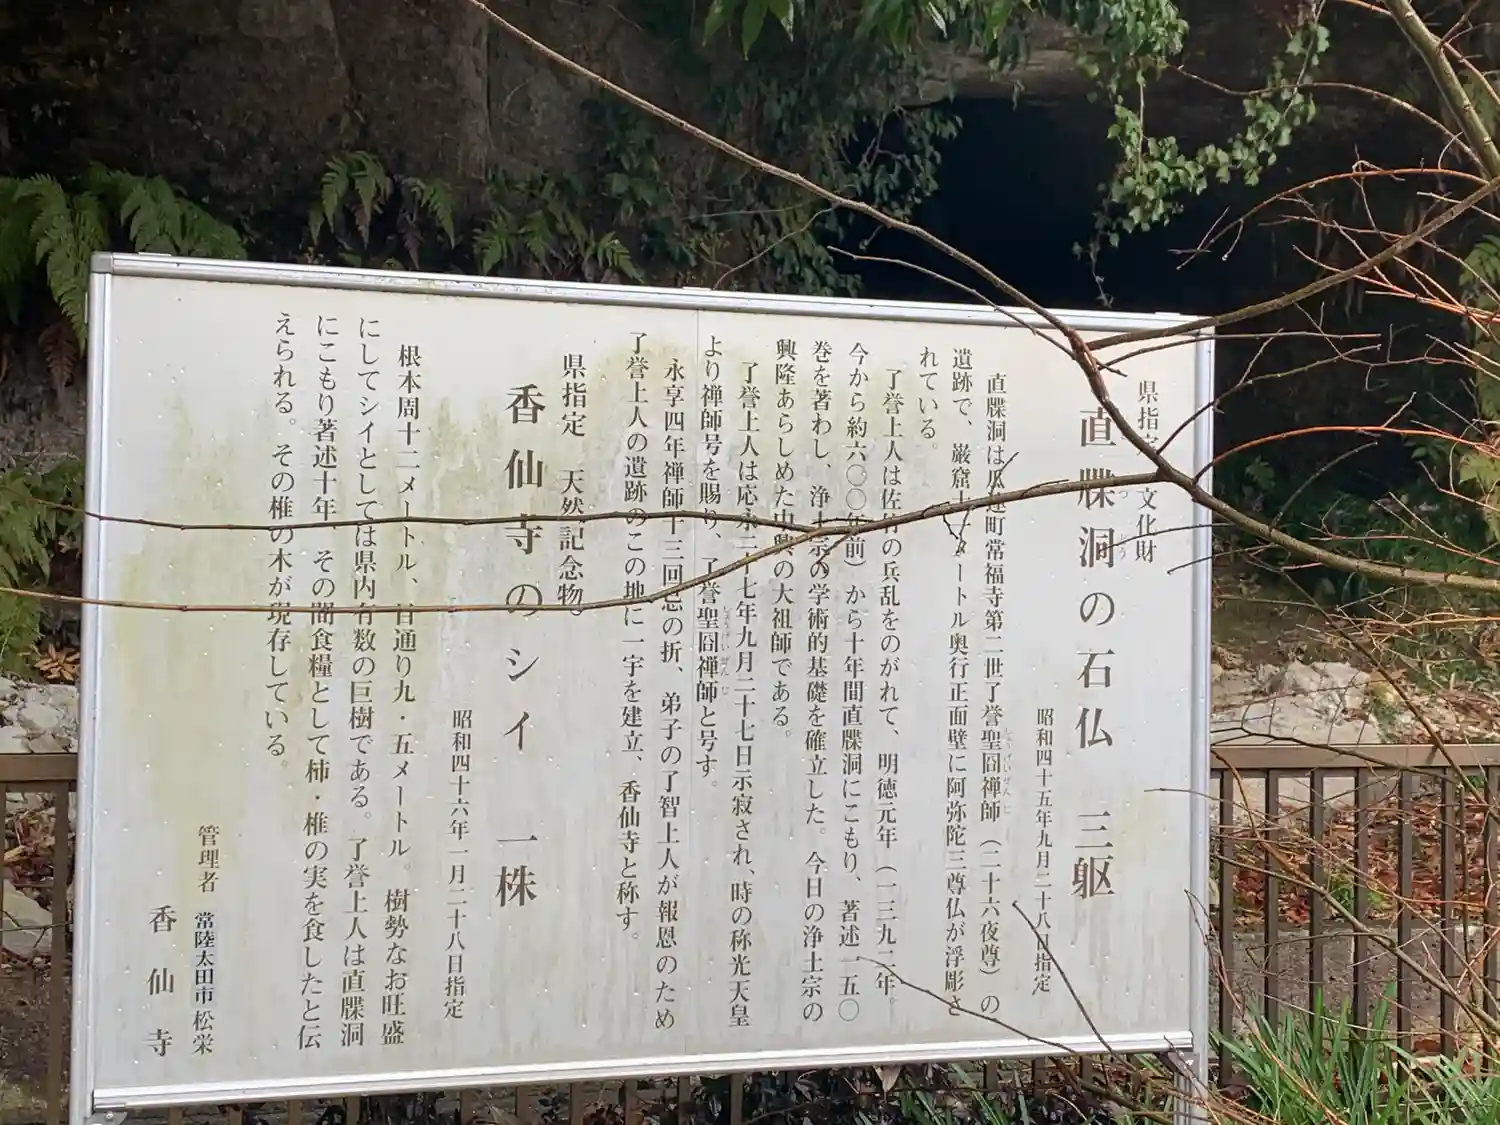 県指定文化財
直牒洞の石仏 三躯
昭和四十五年九月二十八日指定
直牒洞は瓜連町常福寺第二世了誉聖冏禅師（二十六夜尊）の
遺跡で、巌窟十一メートル奥行正面壁に阿弥陀三尊仏が浮彫さ
れている。
了誉上人は佐竹の兵乱をのがれて、明徳元年（一三九二年。
今から約六〇〇年前）から十年間直牒洞にこもり、著述一五〇
巻を著わし、浄土宗の学術的基礎を確立した。今日の浄土宗の
興隆あらしめた中興の大祖師である。
了誉上人は応永二十七年九月二十七日示寂され、時の称光天皇
より禅師号を賜り、了誉聖冏禅師と号す。
永享四年禅師十三回忌の折、弟子の了智上人が報恩のため
了誉上人の遺跡のこの地に一宇を建立、香仙寺と称す。
県指定 天然記念物。
香仙寺のシイ 一株
昭和四十六年一月二十八日指定
根本周十二メートル、目通り九・五メートル。樹勢なお旺盛
にしてシイとしては県内有数の巨樹である。了誉上人は直牒洞
にこもり著述十年 その闇食糧として柿・椎の実を食したと伝
えられる。その椎の木が現存している。
管理者 常陸太田市 松栄
香仙寺